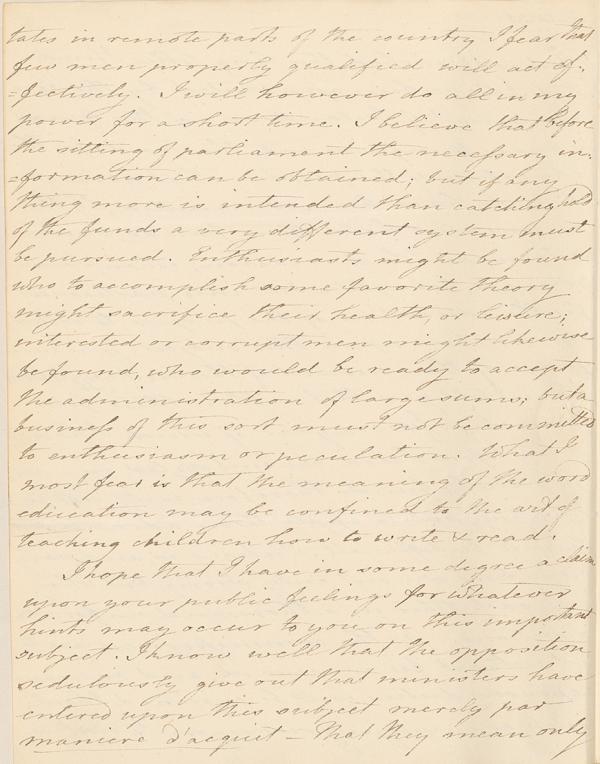 tates in remote parts of the country I fear that
few men properly qualified will act ef-
=fectively. I will however do all in my
power for a short time. I believe that before
the sitting of parliament the necessary in-
=formation can be obtained; but if any
thing more is intended than catching hold
of the funds a very different system must
be pursued. Enthusiasts might be found
who to accomplish some favorite theory
might sacrifice their health, or leisure;
interested or corrupt men might likewise
be found, who would be ready to accept
the administration of large sums; but a
business of this sort must not be committed
to enthusiasm or peculation. What I
most fear is that the meaning of the word
education may be confined to the art of
teaching children how to write & read.
I hope that I have in some degree a claim
upon your public feelings for whatever
hints may occur to you on this important
subject. I know well that the opposition
sedulously give out that ministers have
entered upon this subject merely par
maniere d'acquit - that they mean only